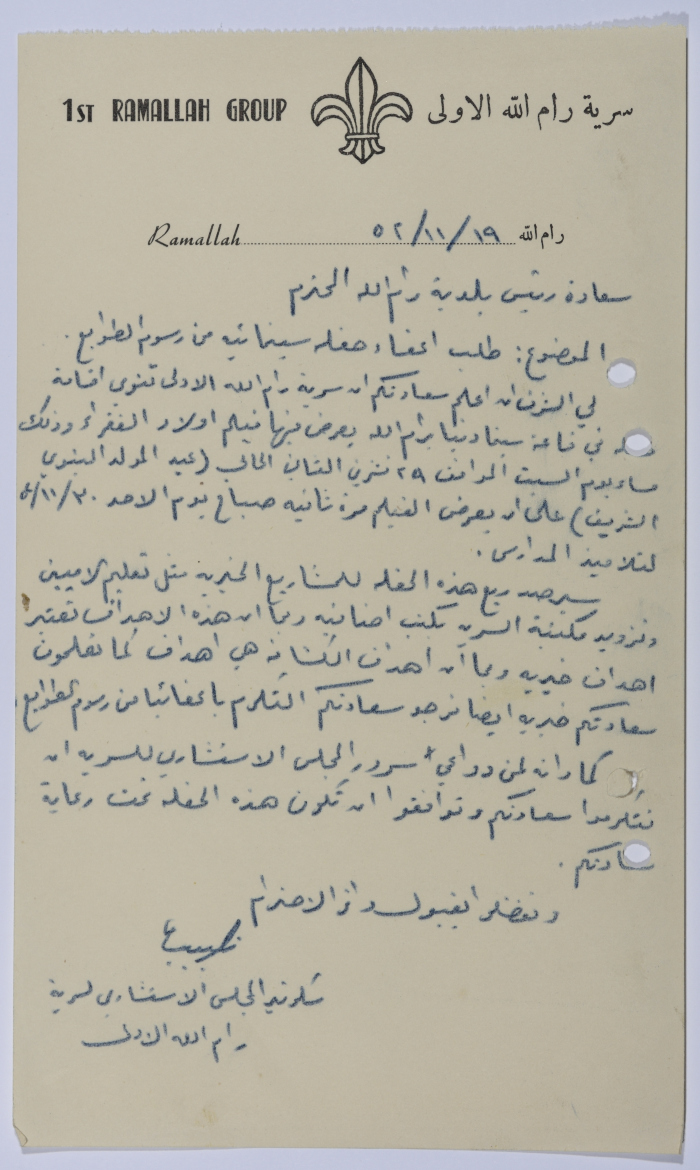 1ST RAMALLAH GROUP
سرية رام الله الاولى
Ramallah ٥٢/١١/١٩ رام الله
سعادة رئيس بلدية رام الله المحترم
الموضوع: طلب اعفاء حفله سينمائيه من رسوم الطوابع.
لي الشرف ان اعلم سعادتكم ان سرية رام الله الاولى تنوي اقامة
في قاعة سينما دنيا برام الله يعرض فيها فيلم اولاد الفقراء وذلك
مساء يوم السبت الموافق ٢٩ تشرين الثاني الحالي (عيد المولد النبوي
الشريف) على ان يعرض الفيلم مرة ثانيه صباح يوم الاحد ١١/٣٠/
لتلاميذ المدارس.
سيرصد ريع هذه الحفله للمشاريع الخيريه مثل تعليم الاميين
وتزويد مكتبة السريه بكتب اضافيه وبما ان هذه الاهداف تعتبر
اهداف خيريه وبما ان اهداف الكشافه هي اهداف كما تعلمون
سعادتكم خيريه ايضا نرجو سعادتكم التكرم باعفائنا من رسوم الطوابع.
كما وانه لمن دواعي سرور المجلس الاستشاري للسريه ان
تتكرموا سعادتكم وتوافقوا ان تكون هذه الحفله تحت رعاية
سعادتكم.
وتفضلوا بقبول وافر الاحترام
سكرتير المجلس الاستشاري لسرية
رام الله الاولى